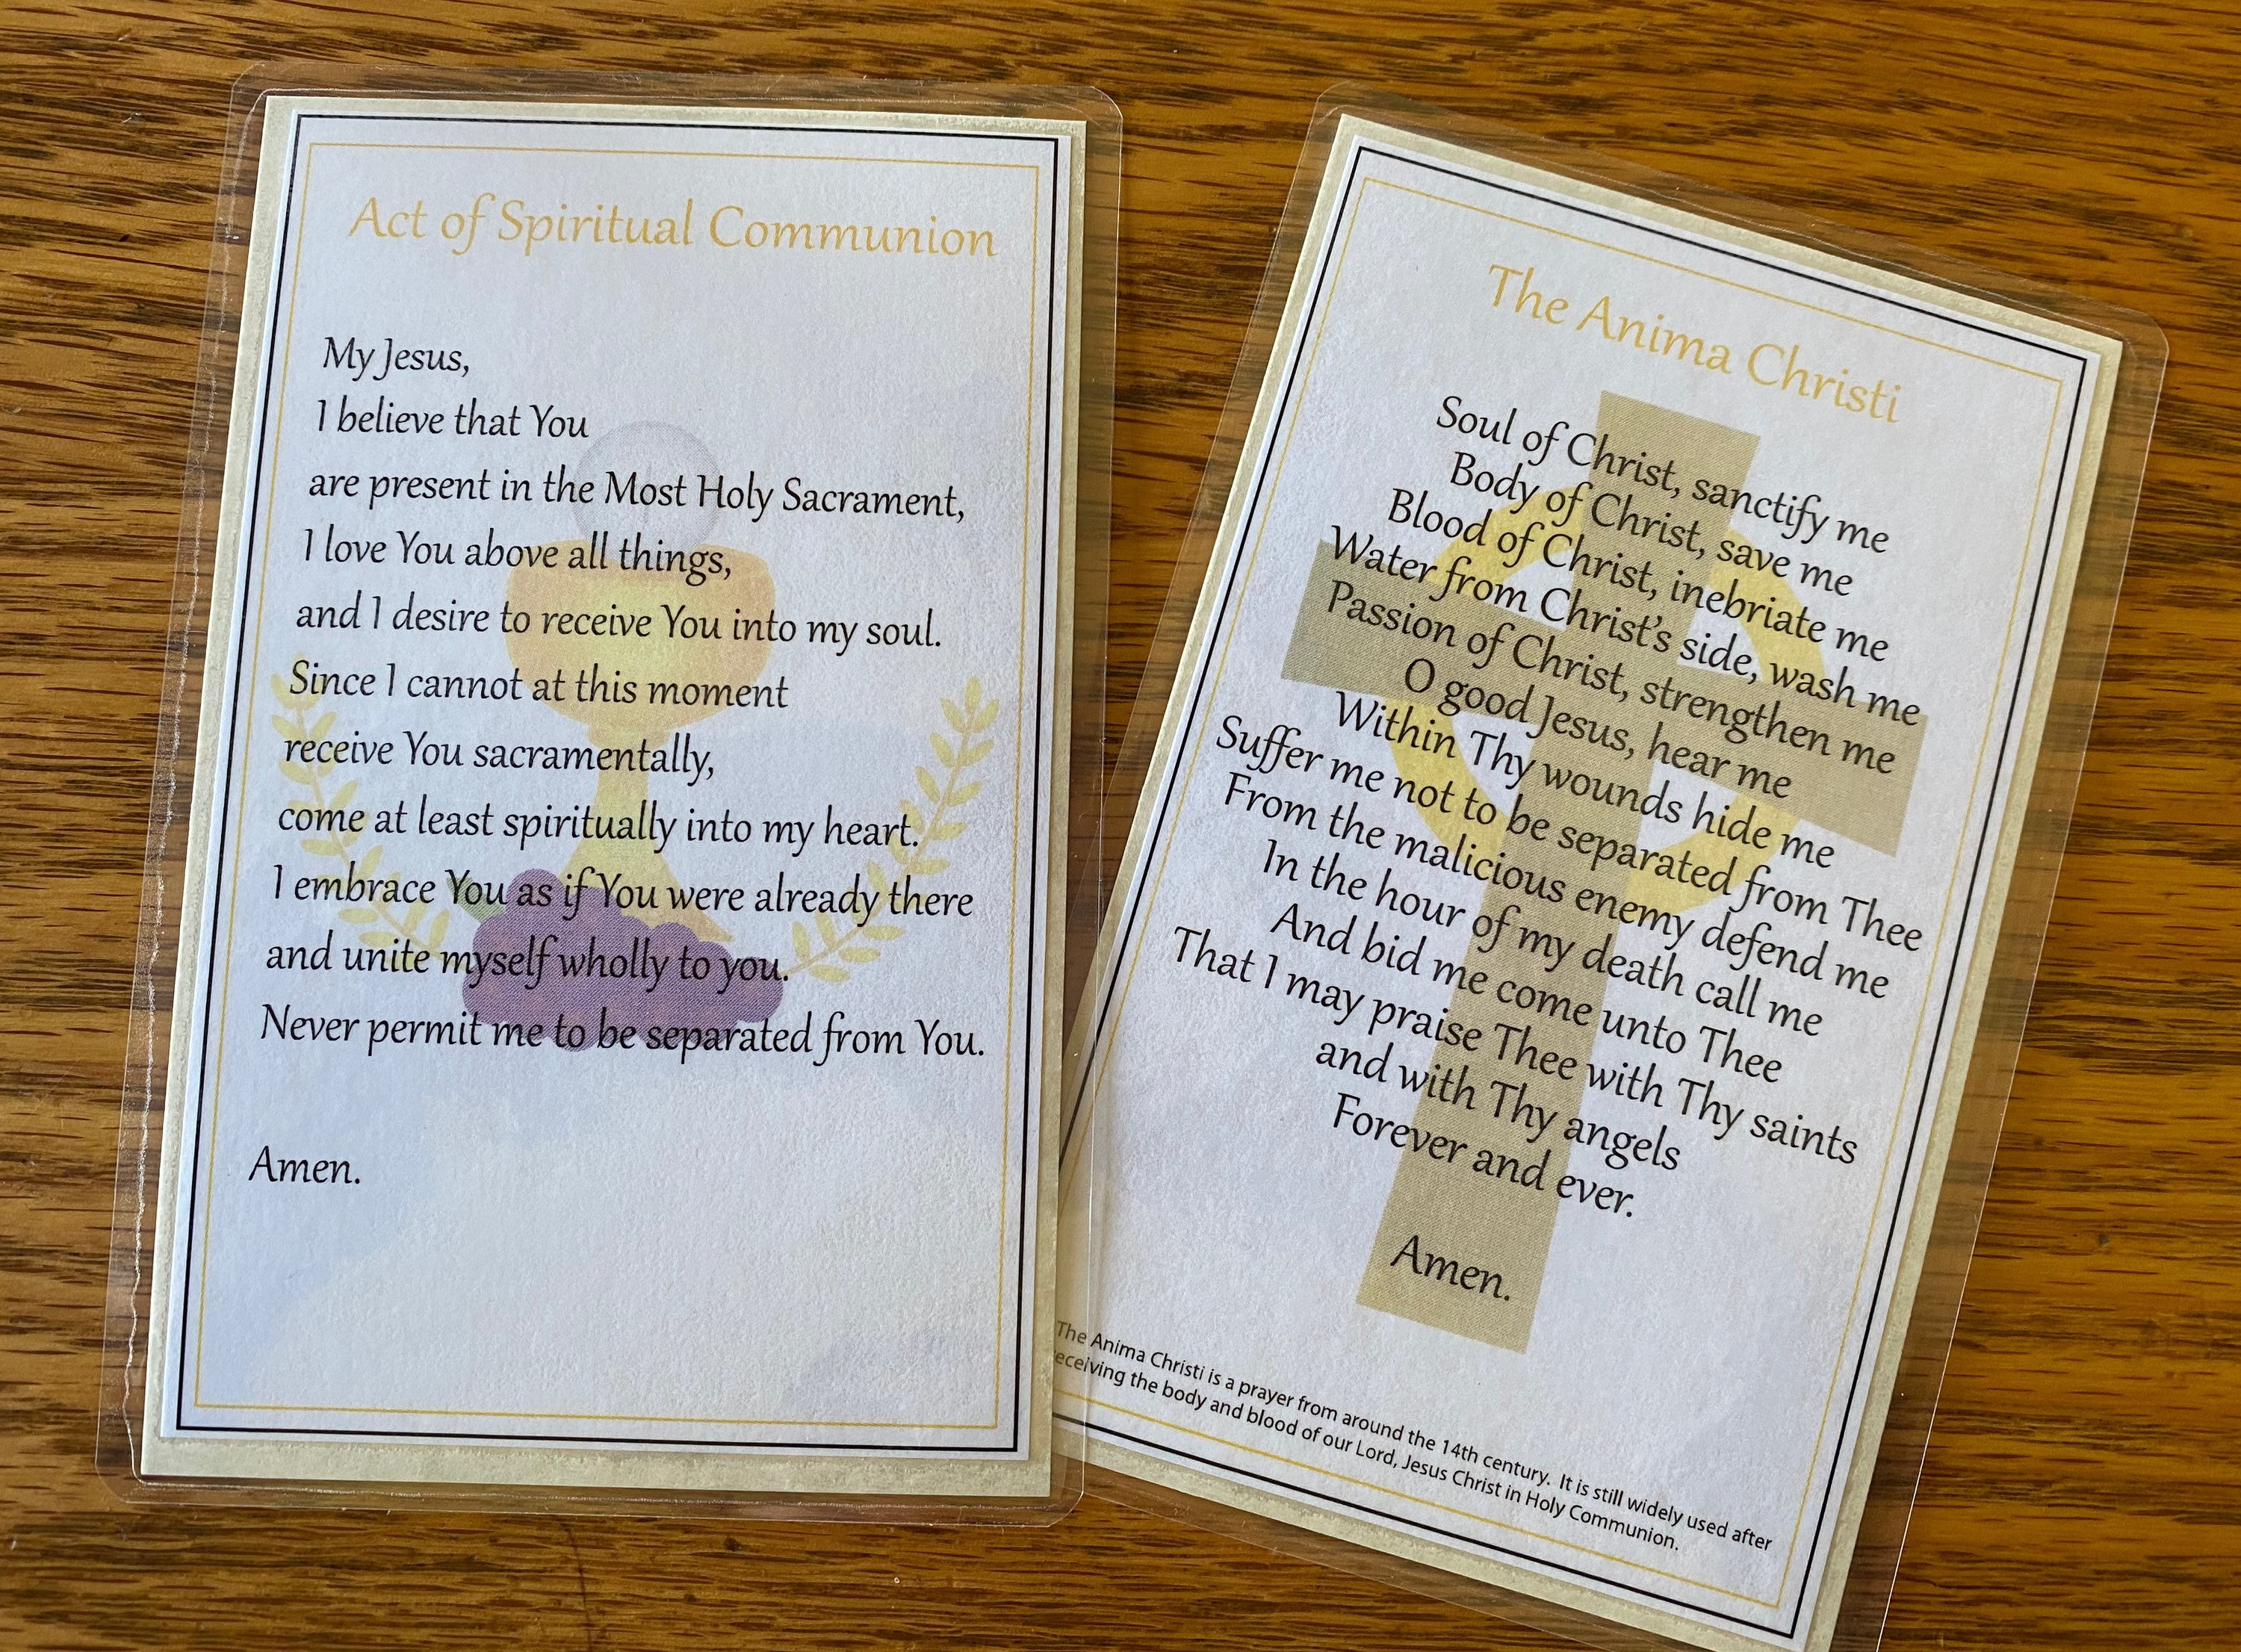 Act of Spiritual Communion
My Jesus,
I believe that You
are present in the Most Holy Sacrament,
I love You above all things,
and I desire to receive You into my soul.
Since I cannot at this moment
receive You sacramentally,
come at least spiritually into my heart.
I embrace You as if You were already there
and unite myself wholly to you.
Never permit me to be separated from You.
Amen.
The Anima Christi
Soul of Christ, sanctify me
Body of Christ, save me
Blood of Christ, inebriate me
Water from Christ's side, wash me
Passion of Christ, strengthen me
O good Jesus, hear me
Within Thy wounds hide me
Suffer me not to be separated from Thee
From the malicious enemy defend me
In the hour of my death call me
And bid me come unto Thee
That I may praise Thee with Thy saints
and with Thy angels
Forever and ever.
Amen.
The Anima Christi is a prayer from around the 14th century. It is still widely used after
receiving the body and blood of our Lord, Jesus Christ in Holy Communion.